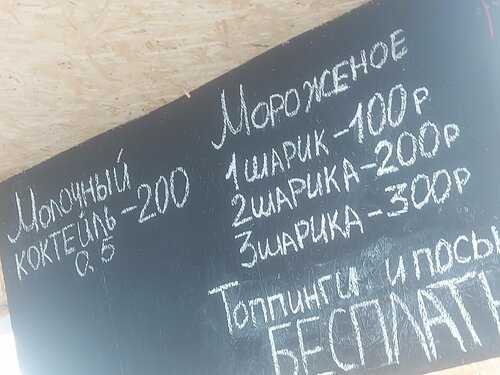 Молочный
коктейль-200
0,5
Мороженое
1 шарик-100р
2 шарика-200р
3 шарика-300р
Топпинги и